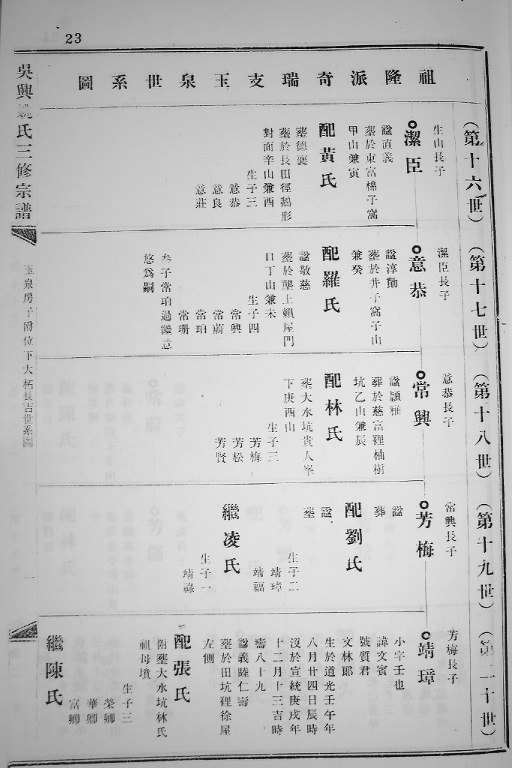 23
祖隆派奇瑞支玉泉世系圖
吳興姚氏三修宗譜
玉泉房子爵位下大柘長吉世系圖
(第十六世)
生山長子
潔臣
諡直義
葬於東富橋子窩
甲山兼寅
配黃氏
諡德褒
葬於長田徑鵝形
對面辛山兼酉
生子三
意恭
意良
意莊
(第十七世)
潔臣長子
意恭
諡淳勤
葬於井子窩子山
兼癸
配羅氏
諡敬慈
葬於壟上賴屋門
口丁山兼未
生子四
常興
常蔚
常珀
常珊
叁子常珀過繼意
悠為嗣
(第十八世)
意恭長子
常興
諡穎雅
葬於慈富裡柚樹
坑乙山兼辰
配林氏
葬大水坑貴人峯
下庚酉山
生子三
芳梅
芳松
芳賢
(第十九世)
常興長子
芳梅
諡
葬
配劉氏
諡
葬
生子二
靖璋
靖福
繼凌氏
生子一
靖祿
(第二十世)
芳梅長子
靖璋
小字壬也
諱文賓
號質君
文林郎
生於道光壬午年
八月廿四日辰時
沒於宣統庚戌年
十二月十三吉時
壽八十九
諡義睦仁壽
葬於田坑裡徐屋
左側
配張氏
附葬大水坑林氏
祖母墳
生子三
榮卿
華卿
富卿
繼陳氏